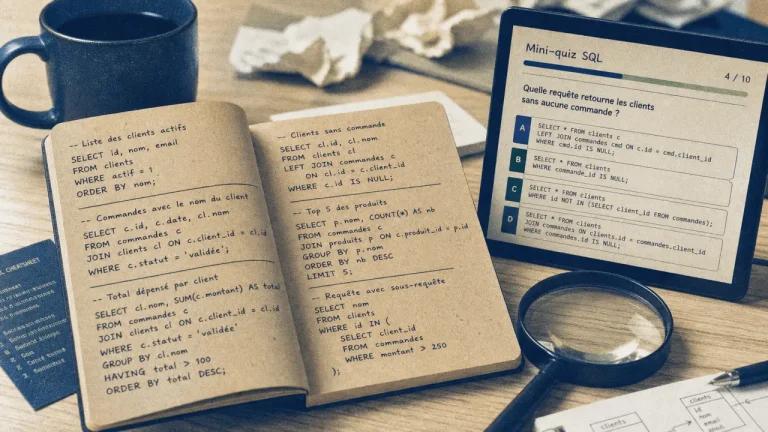 -- Liste des clients actifs
SELECT id, nom, email
FROM clients
WHERE actif = 1
ORDER BY nom;
-- Commandes avec le nom du client
SELECT c.id, c.date, cl.nom
FROM commandes c
JOIN clients cl ON c.client_id = cl.id
WHERE c.statut = 'validée';
-- Total dépensé par client
SELECT cl.nom, SUM(c.montant) AS total
FROM commandes c
JOIN clients cl ON c.client_id = cl.id
WHERE c.statut = 'validée'
GROUP BY cl.nom
HAVING total > 100
ORDER BY total DESC;
-- Clients sans commande
SELECT cl.id, cl.nom
FROM clients cl
LEFT JOIN commandes c
ON cl.id = c.client_id
WHERE c.id IS NULL;
-- Top 5 des produits
SELECT p.nom, COUNT(*) AS nb
FROM commandes c
JOIN produits p ON c.produit_id = p.id
GROUP BY p.nom
ORDER BY nb DESC
LIMIT 5;
-- Requête avec sous-requête
SELECT nom
FROM clients
WHERE id IN (
SELECT client_id
FROM commandes
WHERE montant > 250
);
Mini-quiz SQL
4 / 10
Quelle requête retourne les clients
sans aucune commande ?
A
SELECT * FROM clients c
LEFT JOIN commandes cmd ON c.id = cmd.client_id
WHERE cmd.id IS NULL;
B
SELECT * FROM clients
WHERE commande_id IS NULL;
C
SELECT * FROM clients
WHERE id NOT IN (SELECT client_id FROM commandes);
D
SELECT * FROM clients
JOIN commandes ON clients.id = commandes.client_id
WHERE commandes.id IS NULL;
CHEATSHEET
clients
clients
id
nom
email